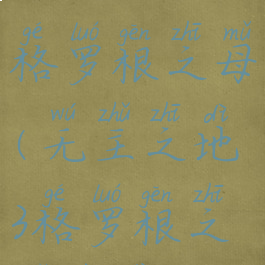 gé luó gēn zhī mǔ
格罗根之母
wú zhǔ zhī dì
(无主之地
gé luó gēn zhī
3格罗根之